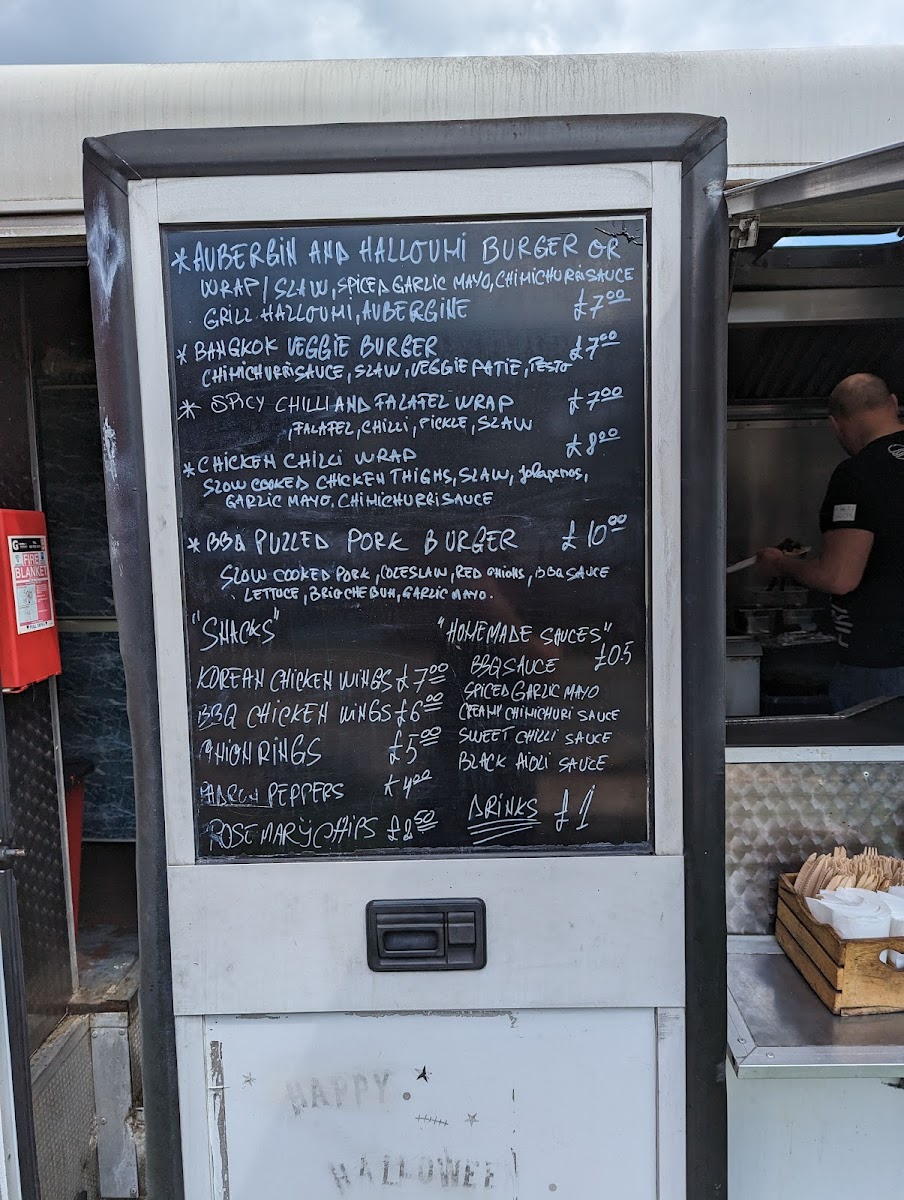 *AUBERGIN AND HALLOUMI BURGER OR
WRAP/SLAW, SPICED GARLIC MAYO, CHIMICHURRISAUCE
GRILL HALLOUMI, AUBERGINE £7.00
*BANGKOK VEGGIE BURGER £7.00
CHIMICHURRISAUCE, SLAW, VEGGIE PATIE, PESTO
* SPICY CHILLI AND FALAFEL WRAP £7.00
,FALAFEL, CHILLI, PICKLE, SLAW
*CHICKEN CHILLI WRAP £8.00
SLOW COOKED CHICKEN THIGHS, SLAW, jalapenos,
GARLIC MAYO, CHIMICHURRISAUCE
*BBQ PULLED PORK BURGER £10.00
SLOW COOKED PORK, COLESLAW, RED ONIONS, BBQ SAUCE
LETTUCE, BRIOCHE BUN, GARLIC MAYO.
"SNACKS"
KOREAN CHICKEN WINGS £7.00
BBQ CHICKEN WINGS £6.00
ONION RINGS £5.00
PEPPERS £4.00
ROSEMARY CHIPS £2.50
"HOMEMADE SAUCES"
BBQ SAUCE £0.5
SPICED GARLIC MAYO
CREAMY CHIMICHURI SAUCE
SWEET CHILLI SAUCE
BLACK AIOLI SAUCE
DRINKS £1
FIRE
BLANKET
HAPPY
HALLOWEE